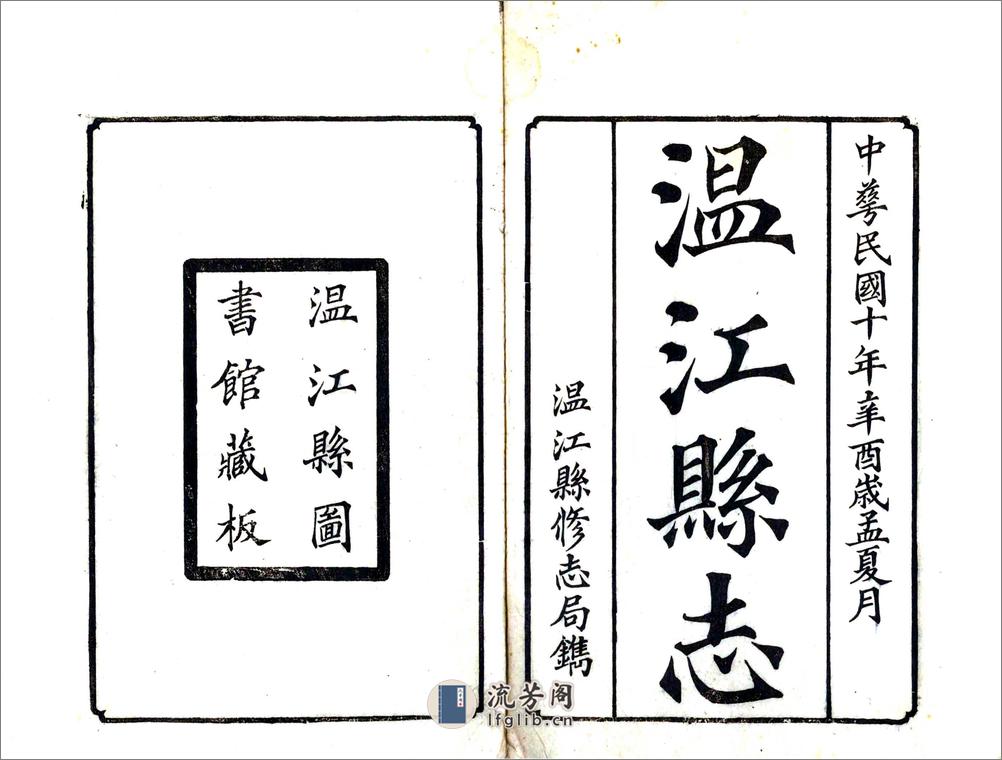 中華民國十年辛酉歲孟夏月
温江縣志
温江縣修志局鐫
温江縣圖
書館藏板
流芳阁
lfglib.cn